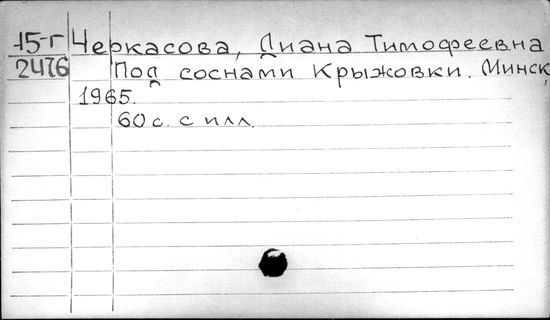 15-г Черкасова, Диана Тимофеевна
2476 Под соснами Крыжовки. Минск,
1965.
60 с. с илл.